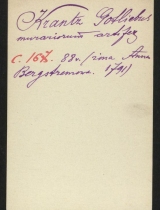 Krantz Gotliebus
murariorum artifex
C. 167. 88v. (ima Anna
Bergstremova. 1791)